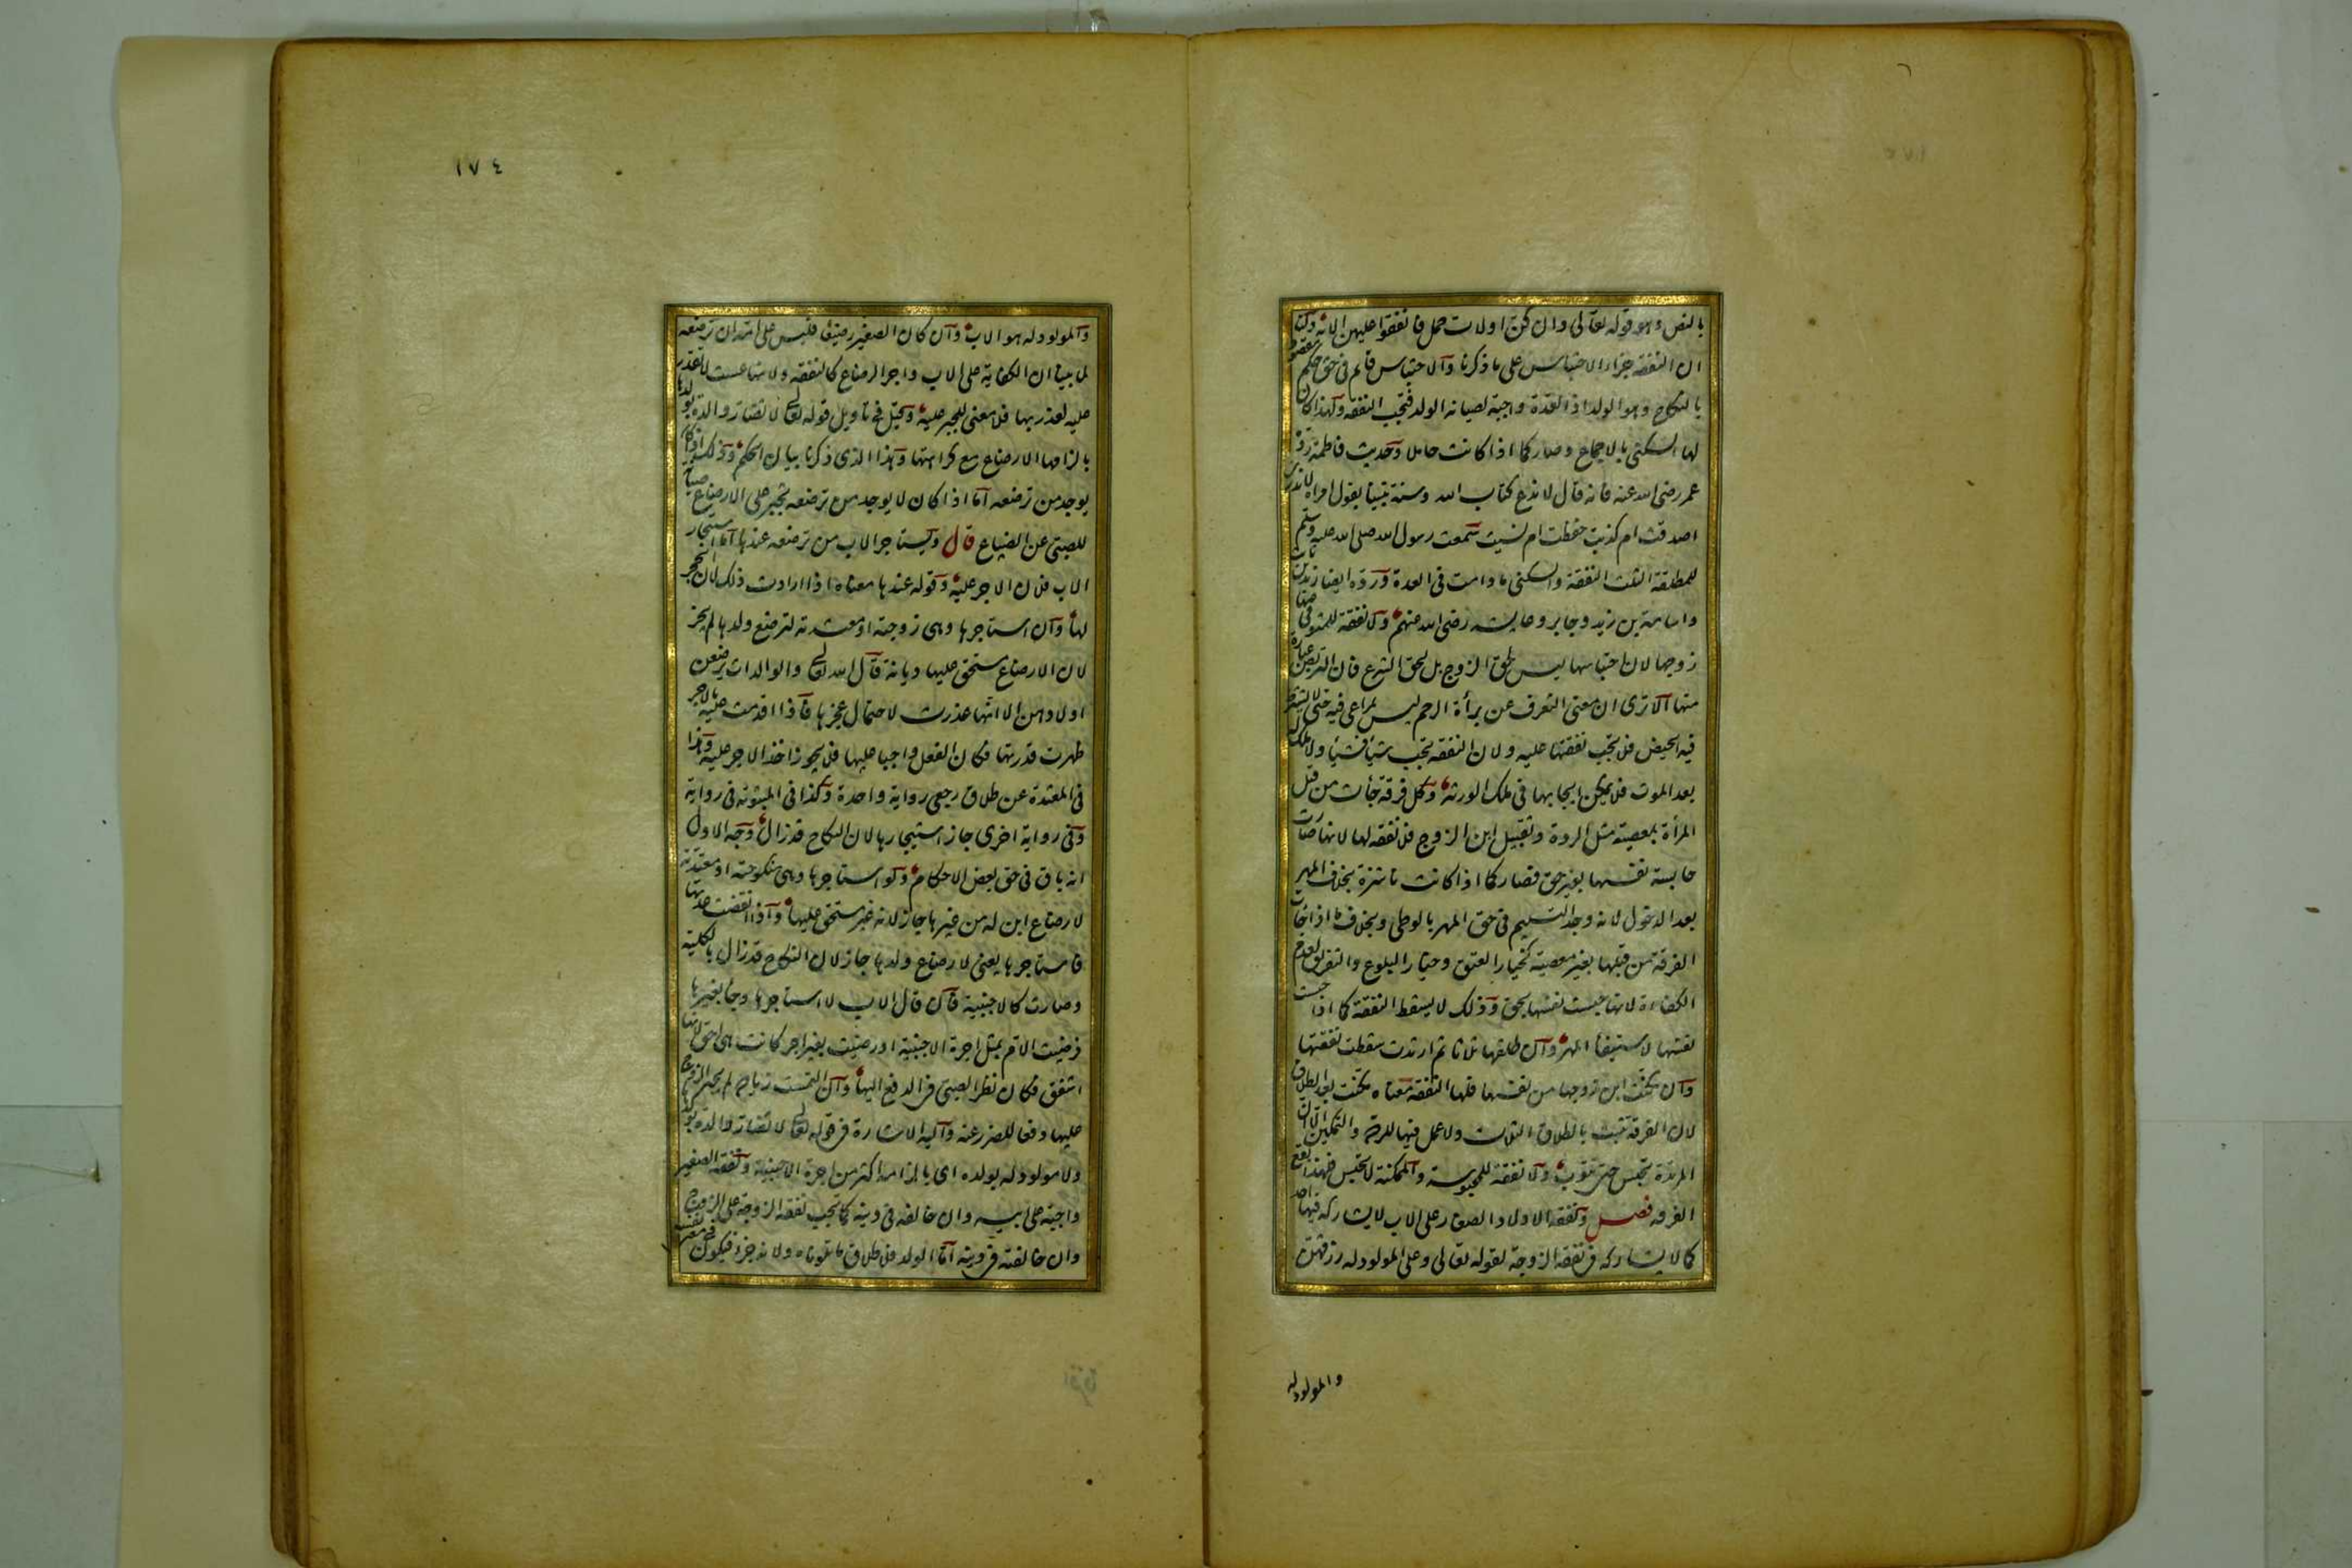 بالنص وهو قوله تعالى وان كن اولات حمل فانفقوا عليهن الاية ولنا
ان النفقة جزاء الاحتباس على ما ذكرنا والاحتباس قائم فى حق حكم مقصود
بالنكاح وهو الولد اذ العدة واجبة لصيانة الولد فتجب النفقة ولهذا كان
لها السكنى بالاجماع وصار كما اذا كانت حاملا وحديث فاطمة رده
عمر رضى الله عنه فانه قال لا ندع كتاب الله وسنة نبينا بقول امراة لا ندرى
اصدقت ام كذبت حفظت ام نسيت سمعت رسول الله صلى الله عليه وسلم
للمطلقة الثلث النفقة والسكنى ما دامت فى العدة ورده ايضا زيد بن ثابت
واسامة بن زيد وجابر وعايشة رضى الله عنهم ولا نفقة للمتوفى عنها
زوجها لان احتباسها ليس لحق الزوج بل لحق الشرع فان التربص عبادة
منها الا ترى ان معنى التعرف عن براة الرحم ليس بمراعى فيه حتى لا يشترط
فيه الحيض فلا تجب نفقتها عليه ولان النفقة تجب شيأ فشيأ ولا ملك له
بعد الموت فلا يمكن ايجابها فى ملك الورثة وكل فرقة جات من قبل
المرأة بمعصية مثل الردة وتقبيل ابن الزوج فلا نفقة لها لانها صارت
حابسة نفسها بغير حق فصار كما اذا كانت ناشزة بخلاف المهر
بعد الدخول لانه وجد التسليم فى حق المهر بالوطى وبخلاف ما اذا جات
الفرقة من قبلها بغير معصية كخيار العتق وخيار البلوغ والتفريق لعدم
الكفاءة لانها حبست نفسها بحق وذلك لا يسقط النفقة كما اذا حبست
نفسها لاستيفأ المهر وان طلقها ثلاثا ثم ارتدت سقطت نفقتها
وان مكنت ابن زوجها من نفسها فلها النفقة معناه مكنت بعد الطلاق
لان الفرقة تثبت بالطلاق الثلاث ولا عمل فيها للردة والتمكين الا ان
المرتدة تحبس حتى تتوب ولا نفقة للمحبوسة والممكنة لا تحبس فلهذا يقع
الفرق فصل ونفقة الاولاد الصغار على الاب لا يشاركه فيها احد
كما لا يشاركه فى نفقة الزوجة لقوله تعالى وعلى المولود له رزقهن
والمولود له
١٧٤
والمولود له هو الاب وان كان الصغير رضيعا فليس على امه ان ترضعه
لما بينا ان الكفاية على الاب واجر الرضاع كالنفقة ولانها عست لا تقدر
عليه لعذر بها فلا معنى للجبر عليه وقيل فى تاويل قوله تعالى لا تضار والدة بولدها
بالزامها الارضاع مع كراهتها وهذا الذى ذكرنا بيان الحكم وذلك اذا كان
يوجد من ترضعه اما اذا كان لا يوجد من ترضعه تجبر على الارضاع صيانة
للصبى عن الضياع قال ويستاجر الاب من ترضعه عندها اما استيجار
الاب فلان الاجر عليه وقوله عندها معناه اذا ارادت ذلك لان الحجر
لها وان استاجرها وهى زوجته او معتدته لترضع ولدها لم يجز
لان الارضاع مستحق عليها ديانة قال الله تعالى والوالدات يرضعن
اولادهن الا انها عذرت لاحتمال عجزها فاذا اقدمت عليه بالاجر
ظهرت قدرتها فكان الفعل واجبا عليها فلا يجوز اخذ الاجر عليه وهذا
فى المعتدة عن طلاق رجعى رواية واحدة وكذا فى المبتوتة فى رواية
وفى رواية اخرى جاز استيجارها لان النكاح قد زال وجه الاول
انه باق فى حق بعض الاحكام ولو استاجرها وهى منكوحته او معتدته
لارضاع ابن له من غيرها جاز لانه غير مستحق عليها واذا انقضت عدتها
فاستاجرها يعنى لارضاع ولدها جاز لان النكاح قد زال بالكلية
وصارت كالاجنبية فان قال الاب لا استاجرها وجا بغيرها
فرضيت الام بمثل اجرة الاجنبية او رضيت بغير اجر كانت هى احق لانها
اشفق فكان نظرا للصبى فى الدفع اليها وان التمست زيادة لم يجبر الزوج
عليها دفعا للضرر عنه واليه الاشارة فى قوله تعالى لا تضار والدة بولدها
ولا مولود له بولده اى بالزامه اكثر من اجرة الاجنبية ونفقة الصغير
واجبة على ابيه وان خالفه فى دينه كما تجب نفقة الزوجة على الزوج
وان خالفته فى دينه اما الولد فلاطلاق ما تلوناه ولانه جزؤه فيكون فى معنى نفسه